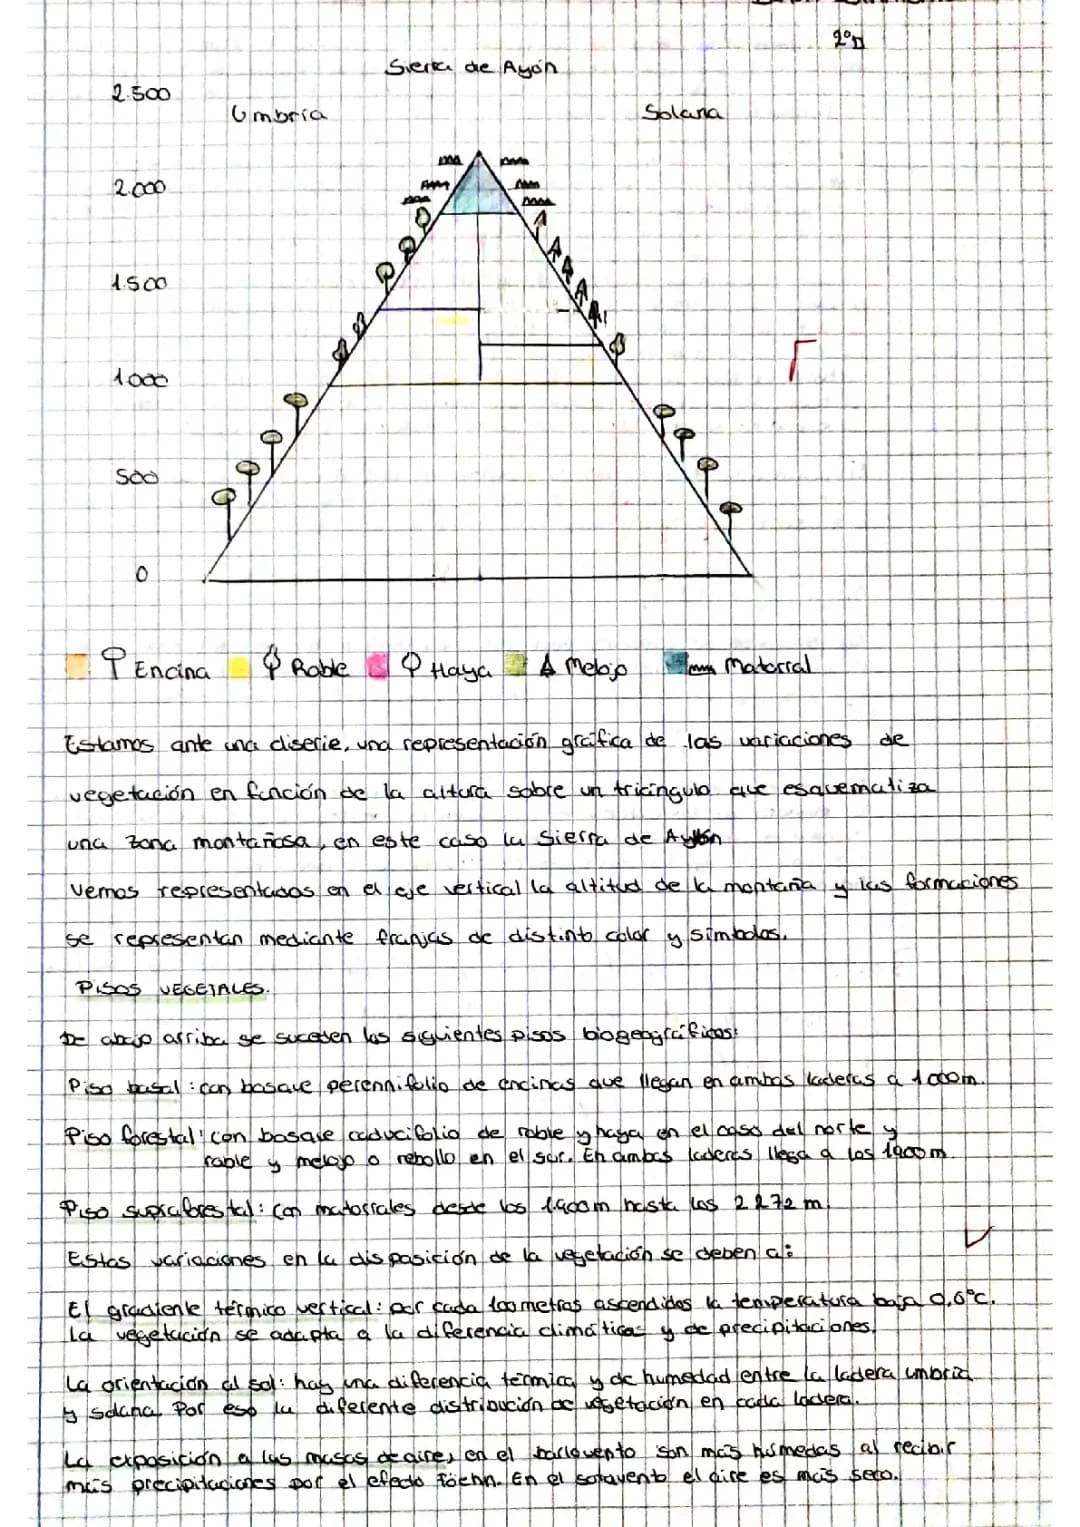 2ºD
Sierra de Ayón
2.500
Umbría
Solana
2.000
1.500
1.000
500
0
Encina Roble Haya Melojo Matorral
Estamos ante una cliserie, una representación gráfica de las variaciones de
vegetación en función de la altura sobre un triángulo que esquematiza
una zona montañosa, en este caso la Sierra de Ayón
Vemos representados en el eje vertical la altitud de la montaña y las formaciones
se representan mediante franjas de distinto color y símbolos.
PISOS VEGETALES.
De abajo arriba se suceden los siguientes pisos biogeográficos:
Piso basal: con bosque perennifolio de encinas que llegan en ambas laderas a 1000m.
Piso forestal: con bosque caducifolio de roble y haya en el caso del norte y
roble y melojo o rebollo en el sur. En ambas laderas llega a los 1900m.
Piso supraforestal: con matorrales desde los 1.900m hasta los 2272 m.
Estas variaciones en la disposición de la vegetación se deben a:
El gradiente térmico vertical: por cada 100 metros ascendidos la temperatura baja 0,6ºC.
La vegetación se adapta a la diferencia climáticas y de precipitaciones.
La orientación al sol: hay una diferencia térmica y de humedad entre la ladera umbría
y solana. Por eso la diferente distribución de vegetación en cada ladera.
La exposición a las masas de aire, en el barlovento son más húmedas al recibir
más precipitaciones por el efecto föehn. En el sotavento el aire es más seco.